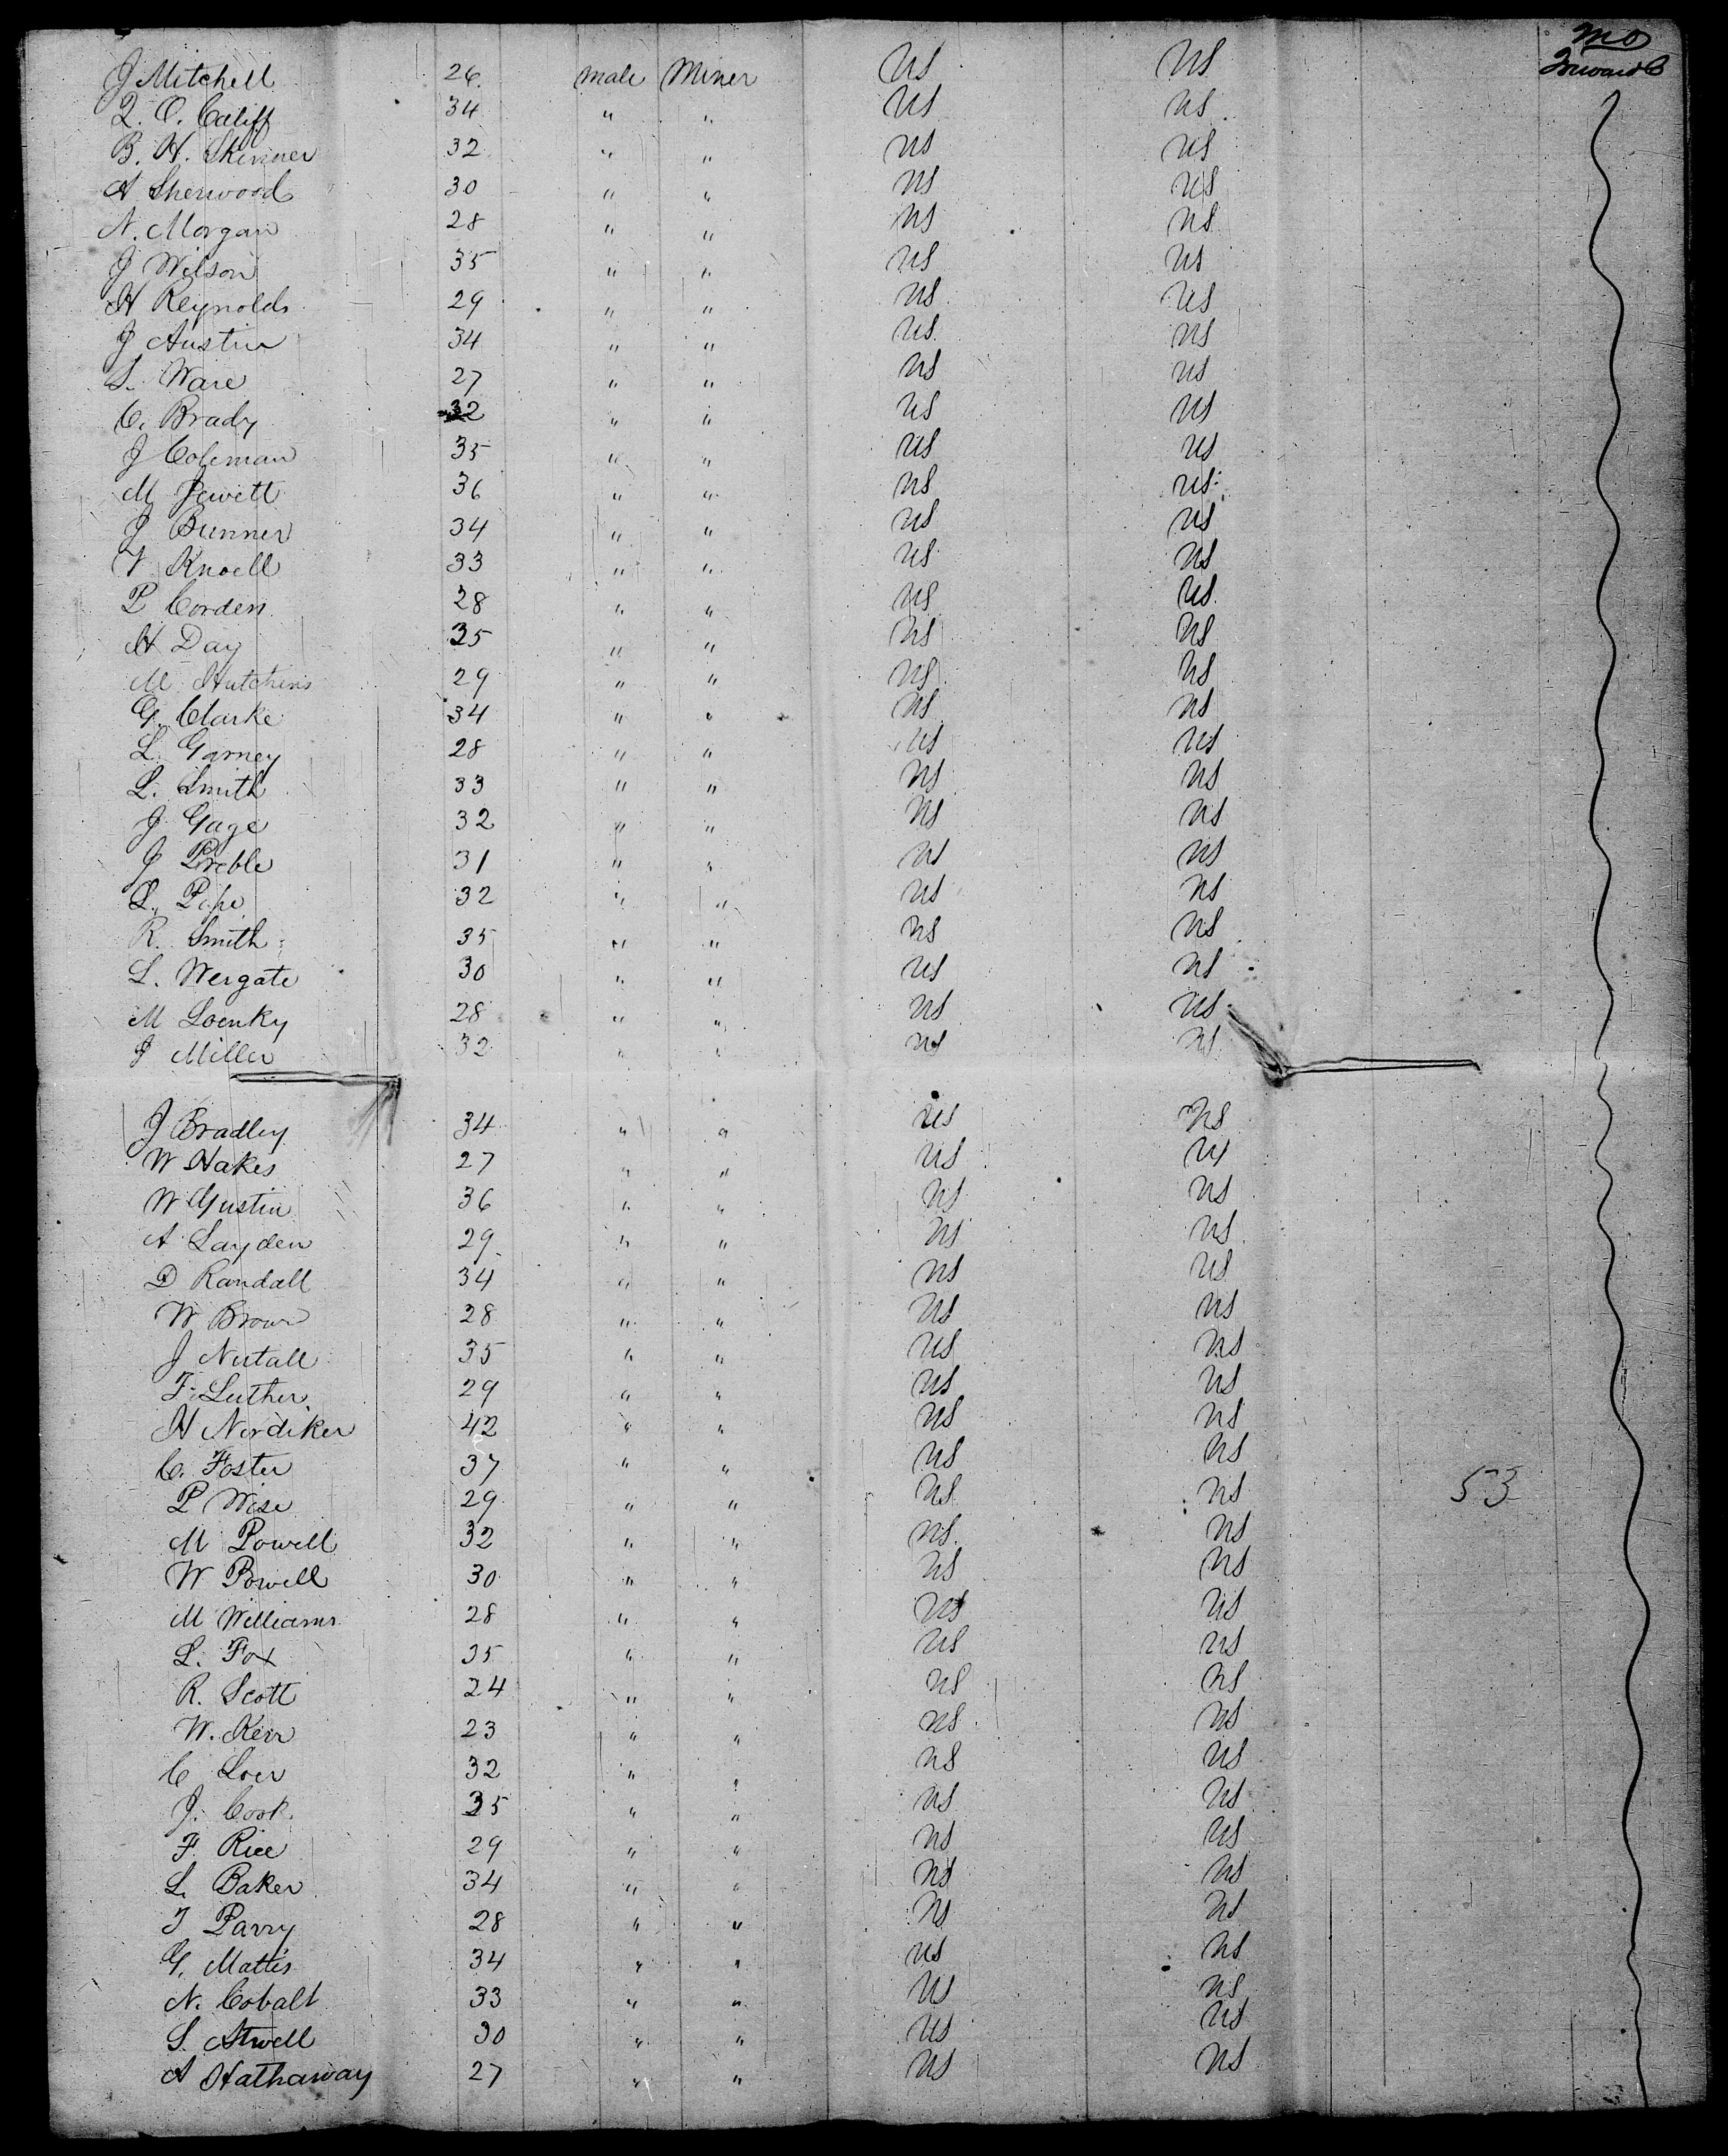 mo
J Mitchell 26. male Miner US US Inward
Q. O. Califf 34 " " US US
B. H. Skinner 32 " " US US
A Sherwood 30 " " US US
N. Morgan 28 " " US US
J Wilson 35 " " US US
H Reynolds 29 " " US US
J Austin 34 " " US US
S. Ware 27 " " US US
C. Brady 32 " " US US
J Coleman 35 " " US US
M Jewett 36 " " US US
J Bunner 34 " " US US
V Knoell 33 " " US US
P Corden 28 " " US US
H Day 35 " " US US
M Hutchens 29 " " US US
G. Clarke 34 " " US US
L. Garney 28 " " US US
L. Smith 33 " " US US
J Gage 32 " " US US
J Preble 31 " " US US
L. Pope 32 " " US US
R. Smith 35 " " US US
L. Wergate 30 " " US US
M Loenky 28 " " US US
J Miller 32 " " US US
J Bradley 34 " " US US
W Hakes 27 " " US US
W Gustin 36 " " US US
A Layden 29 " " US US
D Randall 34 " " US US
W Brown 28 " " US US
J Nutall 35 " " US US
F. Luther 29 " " US US
H Nordiker 42 " " US US
C. Foster 37 " " US US
P Wise 29 " " US US 53
M Powell 32 " " US US
W Powell 30 " " US US
M Williams 28 " " US US
L. Fox 35 " " US US
R. Scott 24 " " US US
W. Kerr 23 " " US US
C Loer 32 " " US US
J. Cook 35 " " US US
F. Rice 29 " " US US
L. Baker 34 " " US US
T Parry 28 " " US US
G. Mattis 34 " " US US
N. Cobalt 33 " " US US
S. Atwell 30 " " US US
A Hathaway 27 " " US US